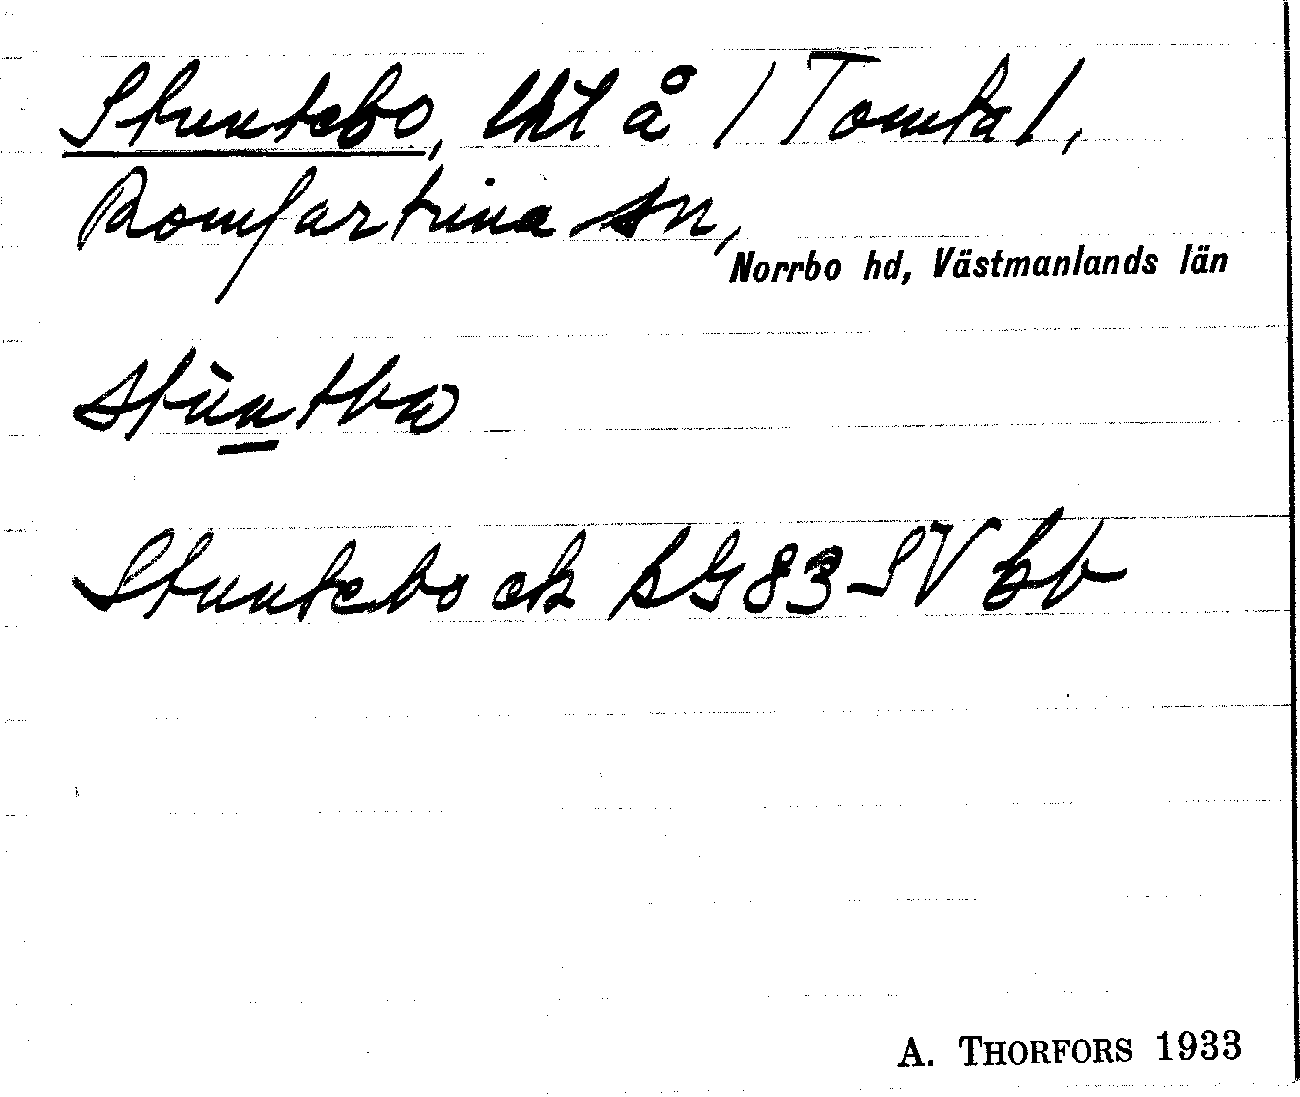 Stuntebo, lht å /Tomta/,
Romfartuna sn,
Norrbo hd, Västmanlands län
stùntbω
Stuntebo ek bG83 SV bb
A. THORFORS 1933